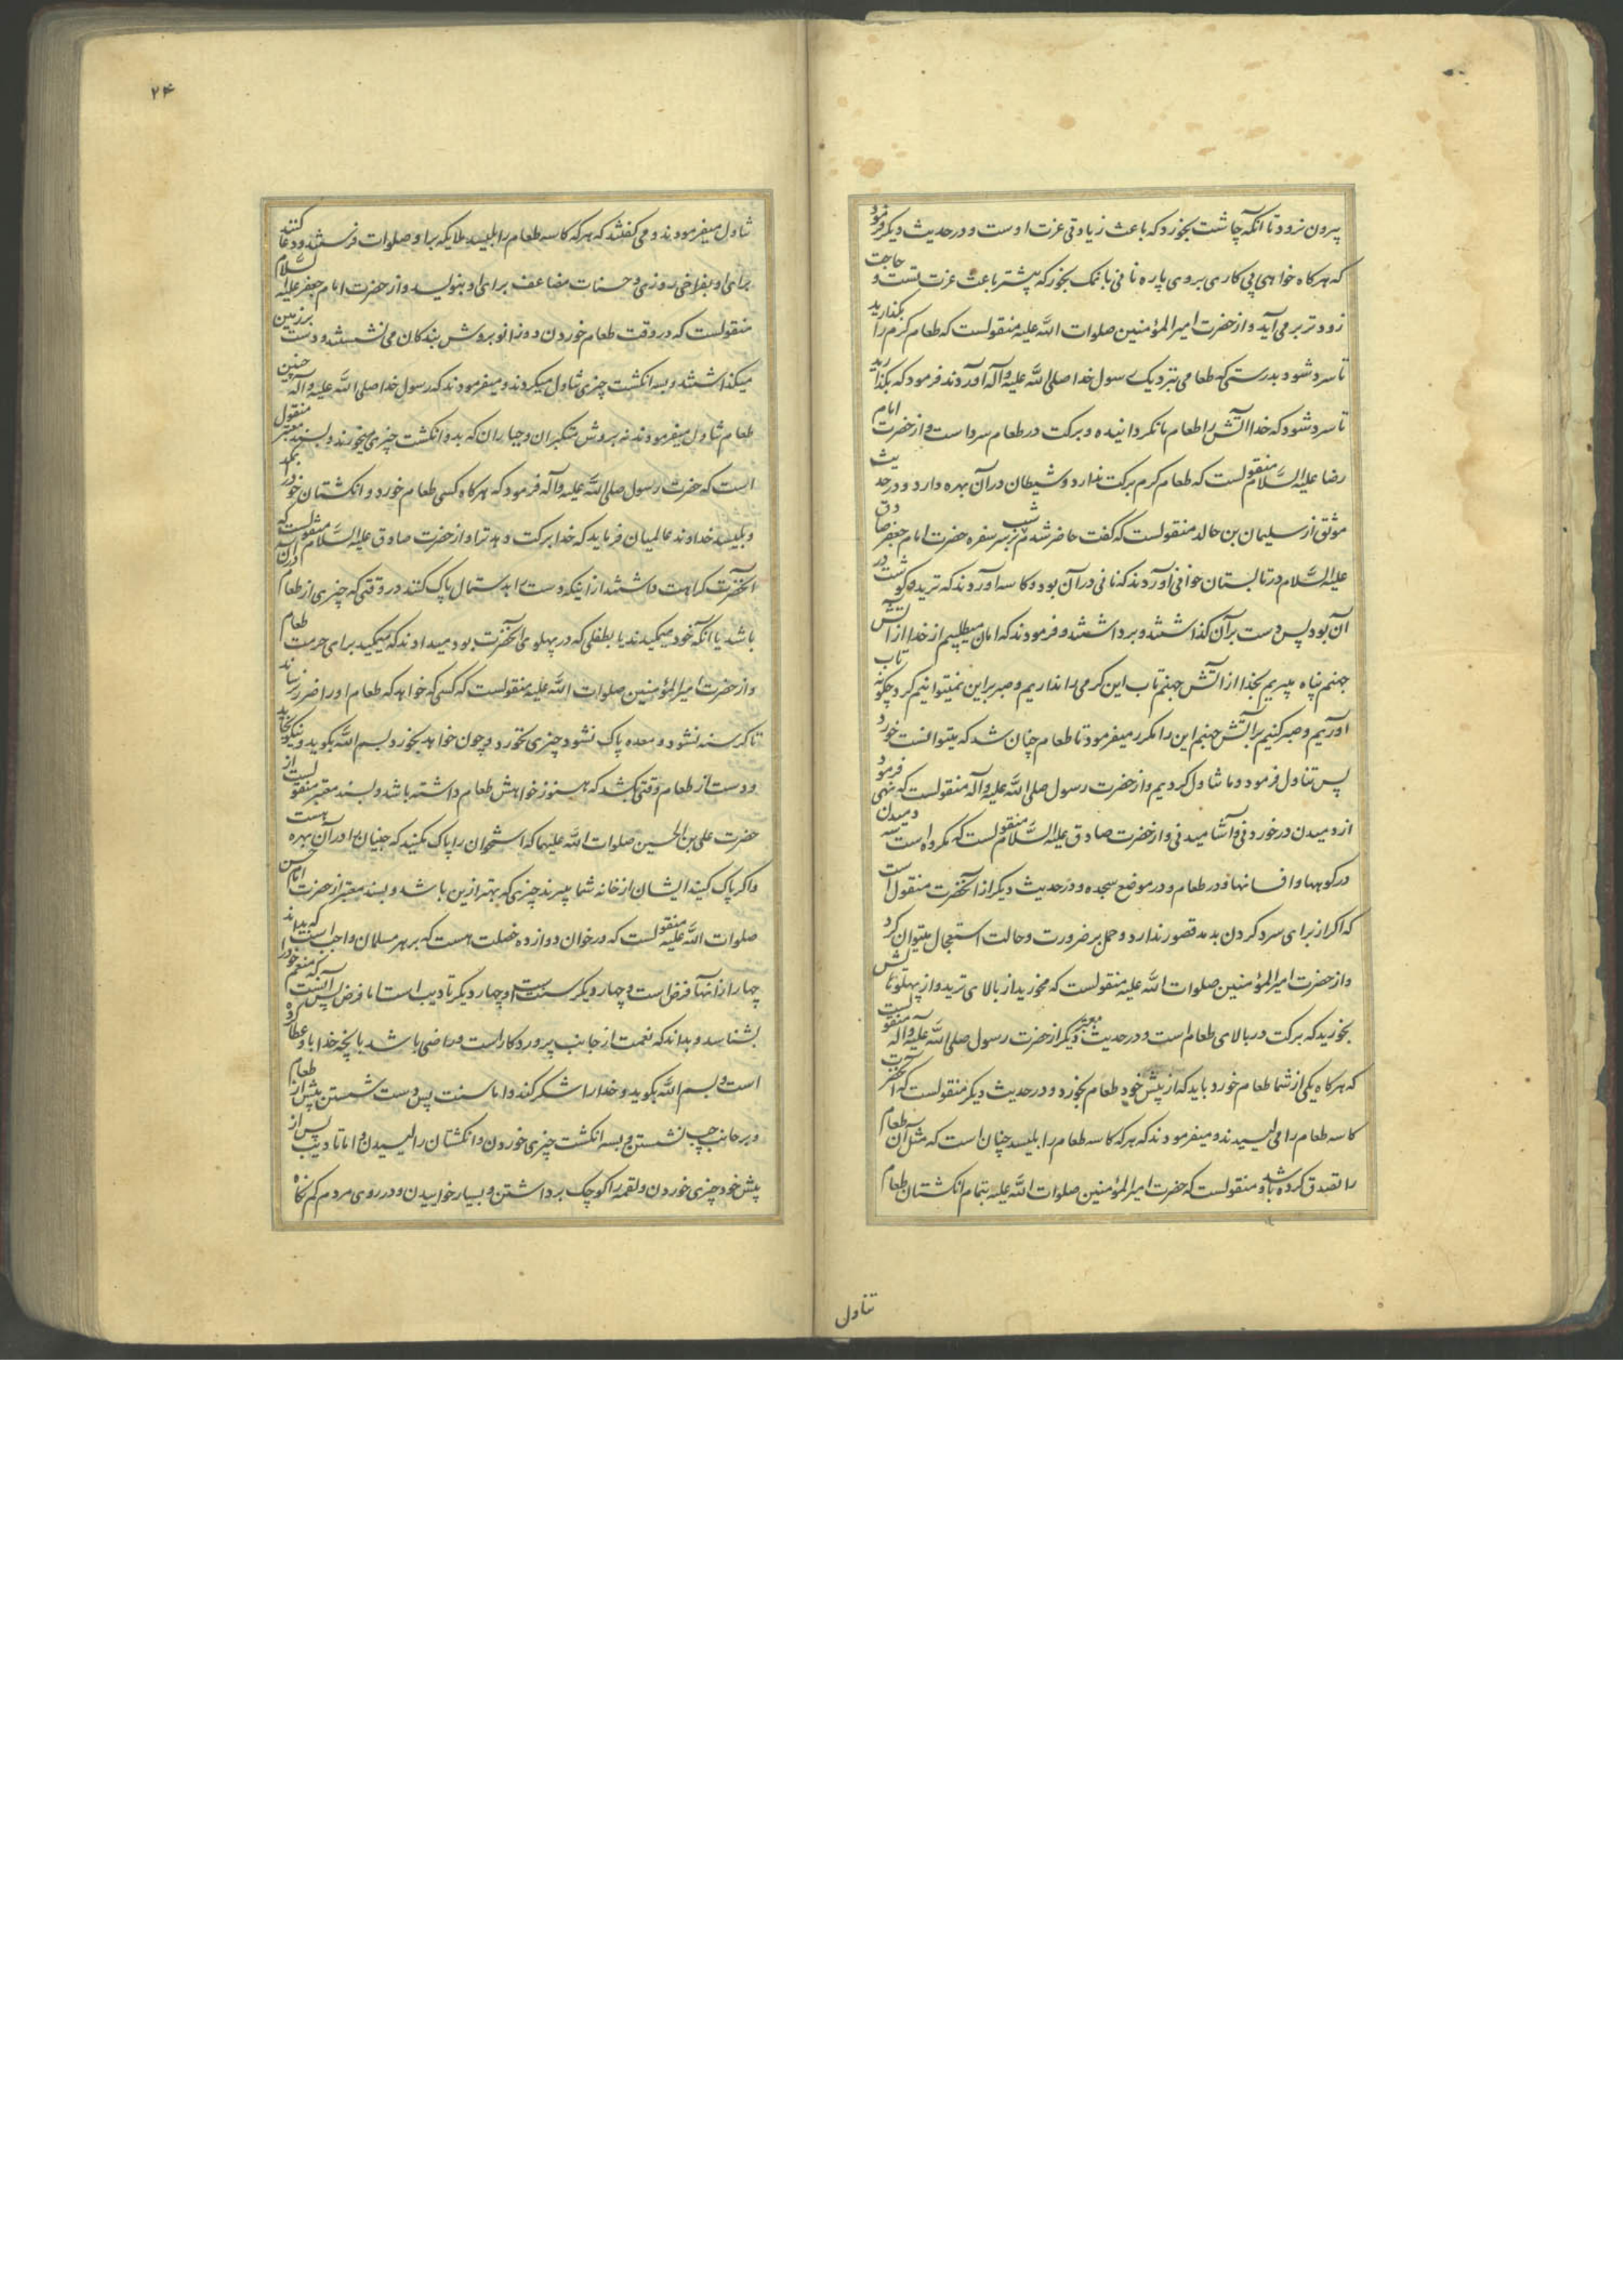 بیرون نرود تا انکه چاشت بخورد که باعث زیادتی عزت اوست و در حدیث دیکر فرمود
که هرکاه خواهی پی کاری بروی پاره نانی با نمک بخور که بیشتر باعث عزت تست و حاجت
زودتر بر می آید و از حضرت امیرالمؤمنین صلوات الله علیه منقولست که طعام کرم را بکذارید
تا سرد شود بدرستی که طعامی بنزدیک رسول خدا صلی الله علیه وآله آوردند فرمود که بکذارید
تا سرد شود که خدا آتش را طعام ما نکردانیده و برکت در طعام سرد است و از حضرت امام
رضا علیه السلام منقولست که طعام کرم برکت ندارد و شیطان در آن بهره دارد و در حدیث
موثق از سلیمان بن خالد منقولست که کفت حاضر شدم شب بر سر سفره حضرت امام جعفر صادق
علیه السلام در تابستان خوانی آوردند که نانی در آن بود و کاسه آوردند که ترید و کوشت در
آن بود پس دست بر آن کذاشتند و برداشتند و فرمودند که امان میطلبیم از خدا از آتش
جهنم پناه میبریم بخدا از آتش جهنم تاب این کرمی را نداریم و صبر براین نمیتوانیم کرد چکونه تاب
آوریم و صبر کنیم بر آتش جهنم این را مکرر میفرمود تا طعام چنان شد که میتوانست خورد
پس تناول فرمود و ما تناول کردیم و از حضرت رسول صلی الله علیه وآله منقولست که نهی فرمود
از دمیدن در خوردنی و آشامیدنی و از حضرت صادق علیه السلام منقولست که مکروه است دمیدن
در کوهها و افسانها و در طعام و در موضع سجده و در حدیث دیکر از آنحضرت منقول است
که اکر از برای سرد کردن بدمد قصور ندارد و حمل بر ضرورت و حالت استعجال میتوان کرد
و از حضرت امیرالمؤمنین صلوات الله علیه منقولست که مخورید از بالای ترید و از پهلوهاش
بخورید که برکت در بالای طعام است و در حدیث معتبر دیکر از حضرت رسول صلی الله علیه وآله منقولست
که هرکاه یکی از شما طعام خورد باید که از پیش خود طعام بخورد و در حدیث دیکر منقولست که آنحضرت
کاسه طعام را می لیسیدند و میفرمودند که هرکه کاسه طعام را بلیسد چنان است که مثل آن طعام
را تصدق کرده باشد و منقولست که حضرت امیرالمؤمنین صلوات الله علیه بتمام انکشتان طعام
تناول
۲۴
تناول میفرمودند و می کفتند که هرکه کاسه طعام را بلیسد ملایکه براو صلوات فرستند و دعا کنند
برای او بفراخی روزی و حسنات مضاعف برای او بنویسند و از حضرت امام جعفر علیه السلام
منقولست که در وقت طعام خوردن دو زانو بروش بندکان می نشستند و دست بر زمین
میکذاشتند و بسه انکشت چیزی تناول میکردند و میفرمودند که رسول خدا صلی الله علیه وآله چنین
طعام تناول میفرمودند نه بروش متکبران و جباران که بدو انکشت چیزی میخورند و بسند معتبر منقول
است که حضرت رسول صلی الله علیه وآله فرمود که هرکاه کسی طعام خورد و انکشتان خود را بمکد
و بلیسد خداوند عالمیان فرماید که خدا برکت دهد ترا و از حضرت صادق علیه السلام منقولست که
آنحضرت کراهت داشتند از اینکه دست را بدستمال پاک کنند در وقتی که چیزی از طعام در آن
باشد یا آنکه خود میمکیدند یا بطفلی که در پهلوی آنحضرت بود میدادند که میمکید برای حرمت طعام
و از حضرت امیرالمؤمنین صلوات الله علیه منقولست که کسی که خواهد که طعام او را ضرر نرساند
تا کرسنه نشود و معده پاک نشود چیزی نخورد و چون خواهد بخورد بسم الله بکوید و نیکو بخاید
و دست از طعام وقتی بکشد که هنوز خواهش طعام داشته باشد و بسند معتبر منقولست از
حضرت علی بن الحسین صلوات الله علیهما که استخوان را پاک مکنید که جنیان را در آن بهره هست
و اکر پاک کنید ایشان از خانه شما میبرند چیزی که بهتر ازین باشد و بسند معتبر از حضرت امام حسن
صلوات الله علیه منقولست که در خوان دوازده خصلت هست که بر هر مسلمان واجب است که بداند
چهار از آنها فرض است و چهار دیکر سنت است و چهار دیکر تادیب است اما فرض پس آنست که منعم خود را
بشناسد و بداند که نعمت از جانب پروردکار است و راضی باشد بانچه خدا باو عطا کرده
است و بسم الله بکوید و خدا را شکر کند و اما سنت پس دست شستن پیش از طعام
و بر جانب چپ نشستن و بسه انکشت چیزی خوردن و انکشتان را لیسیدن و اما تادیب پس از
پیش خود چیزی خوردن و لقمه را کوچک برداشتن و بسیار خواییدن و در روی مردم کم نکاه